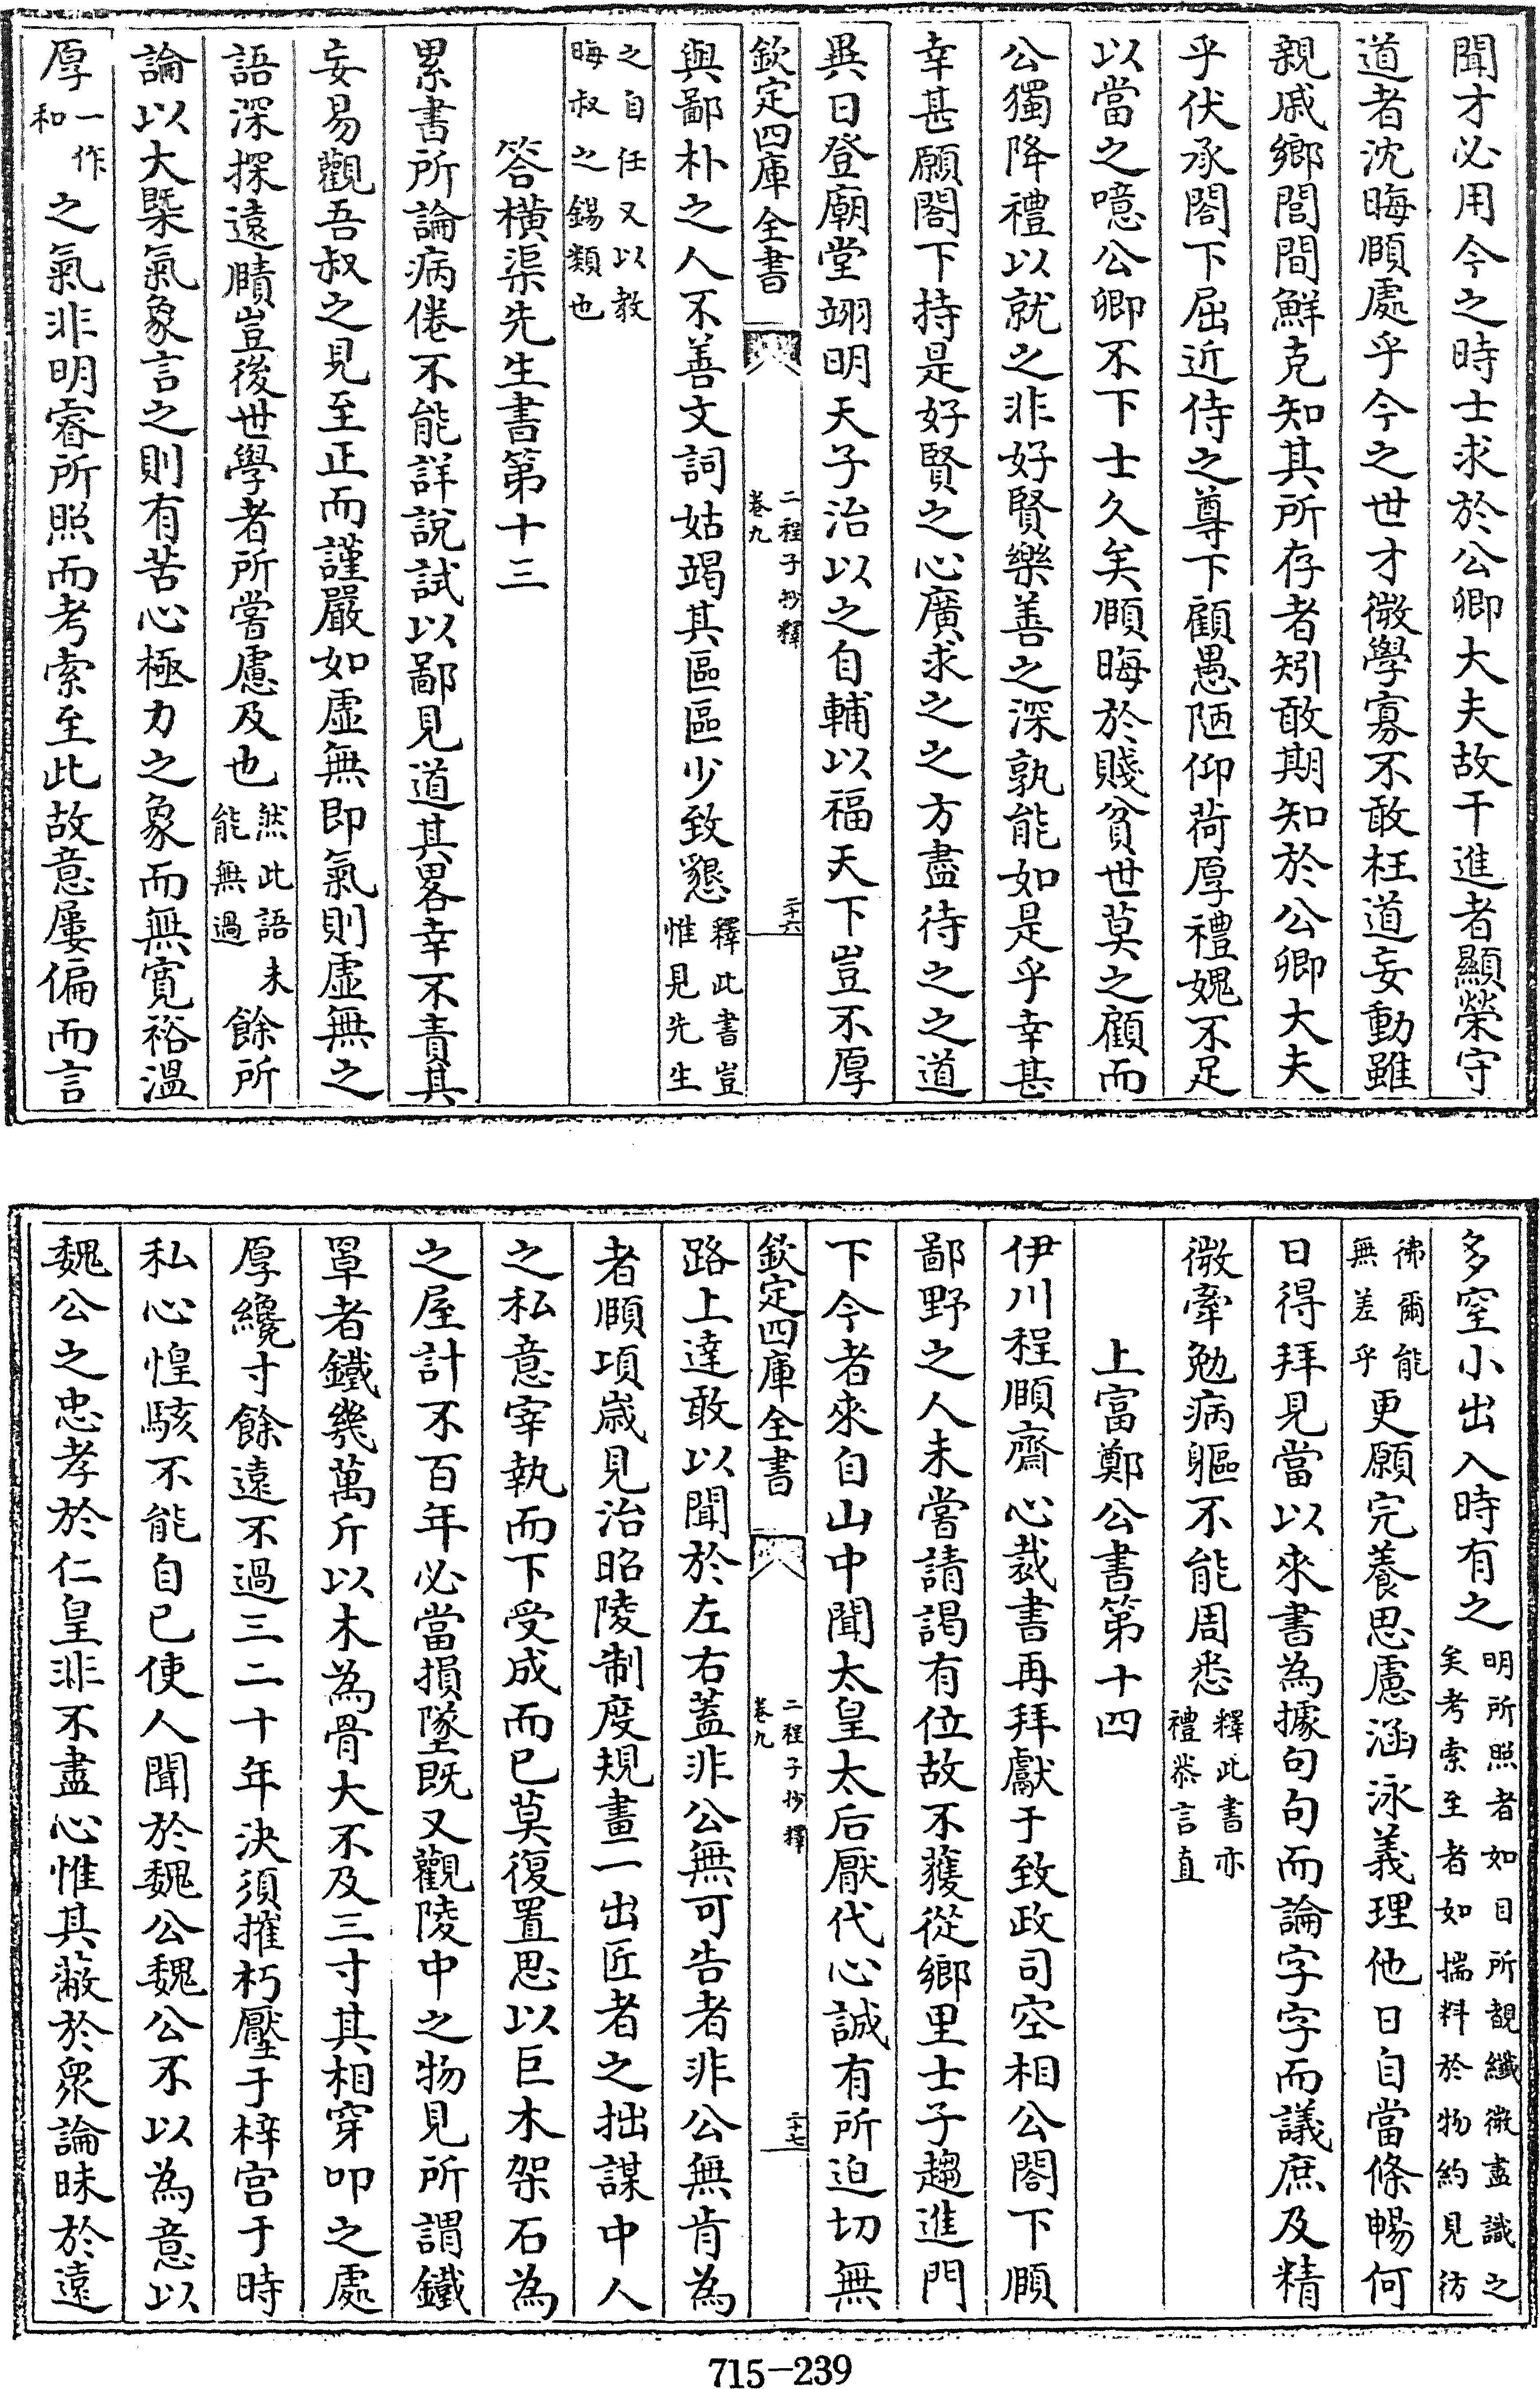 聞才必用今之時士求於公卿大夫故干進者顯榮守
道者沈晦頤處乎今之世才微學寡不敢枉道妄動雖
親戚鄉閭間鮮克知其所存者矧敢期知於公卿大夫
乎伏承閤下屈近侍之尊下顧愚陋仰荷厚禮媿不足
以當之噫公卿不下士久矣頤晦於賤貧世莫之顧而
公獨降禮以就之非好賢樂善之深孰能如是乎幸甚
幸甚願閤下持是好賢之心廣求之之方盡待之之道
異日登廟堂翊明天子治以之自輔以福天下豈不厚
欽定四庫全書
二程子抄釋
卷九
二十六
與鄙朴之人不善文詞姑竭其區區少致懇釋此書豈惟見先生
之自任又以教晦叔之錫類也
答橫渠先生書第十三
累書所論病倦不能詳說試以鄙見道其畧幸不責其
妄易觀吾叔之見至正而謹嚴如虛無即氣則虛無之
語深探遠賾豈後世學者所嘗慮及也然此語未能無過餘所
論以大槩氣象言之則有苦心極力之象而無寬裕溫
厚一作和之氣非明睿所照而考索至此故意屢偏而言
多窒小出入時有之明所照者如目所覩纖微盡識之矣考索至者如揣料於物約見彷
彿爾能無差乎更願完養思慮涵泳義理他日自當條暢何
日得拜見當以來書為據句句而論字字而議庶及精
微牽勉病軀不能周悉釋此書亦禮恭言直
上富鄭公書第十四
伊川程頤齋心裁書再拜獻于致政司空相公閤下頤
鄙野之人未嘗請謁有位故不獲從鄉里士子趨進門
下今者來自山中聞太皇太后厭代心誠有所迫切無
欽定四庫全書
二程子抄釋
卷九
二十七
路上達敢以聞於左右蓋非公無可告者非公無肯為
者頤項歲見治昭陵制度規畫一出匠者之拙謀中人
之私意宰執而下受成而已莫復置思以巨木架石為
之屋計不百年必當損墜既又觀陵中之物見所謂鐵
罩者鐵幾萬斤以木為骨大不及三寸其相穿叩之處
厚纔寸餘遠不過三二十年決須摧朽壓于梓宮于時
私心惶駭不能自已使人聞於魏公魏公不以為意以
魏公之忠孝於仁皇非不盡心惟其蔽於衆論昧於遠
715-239